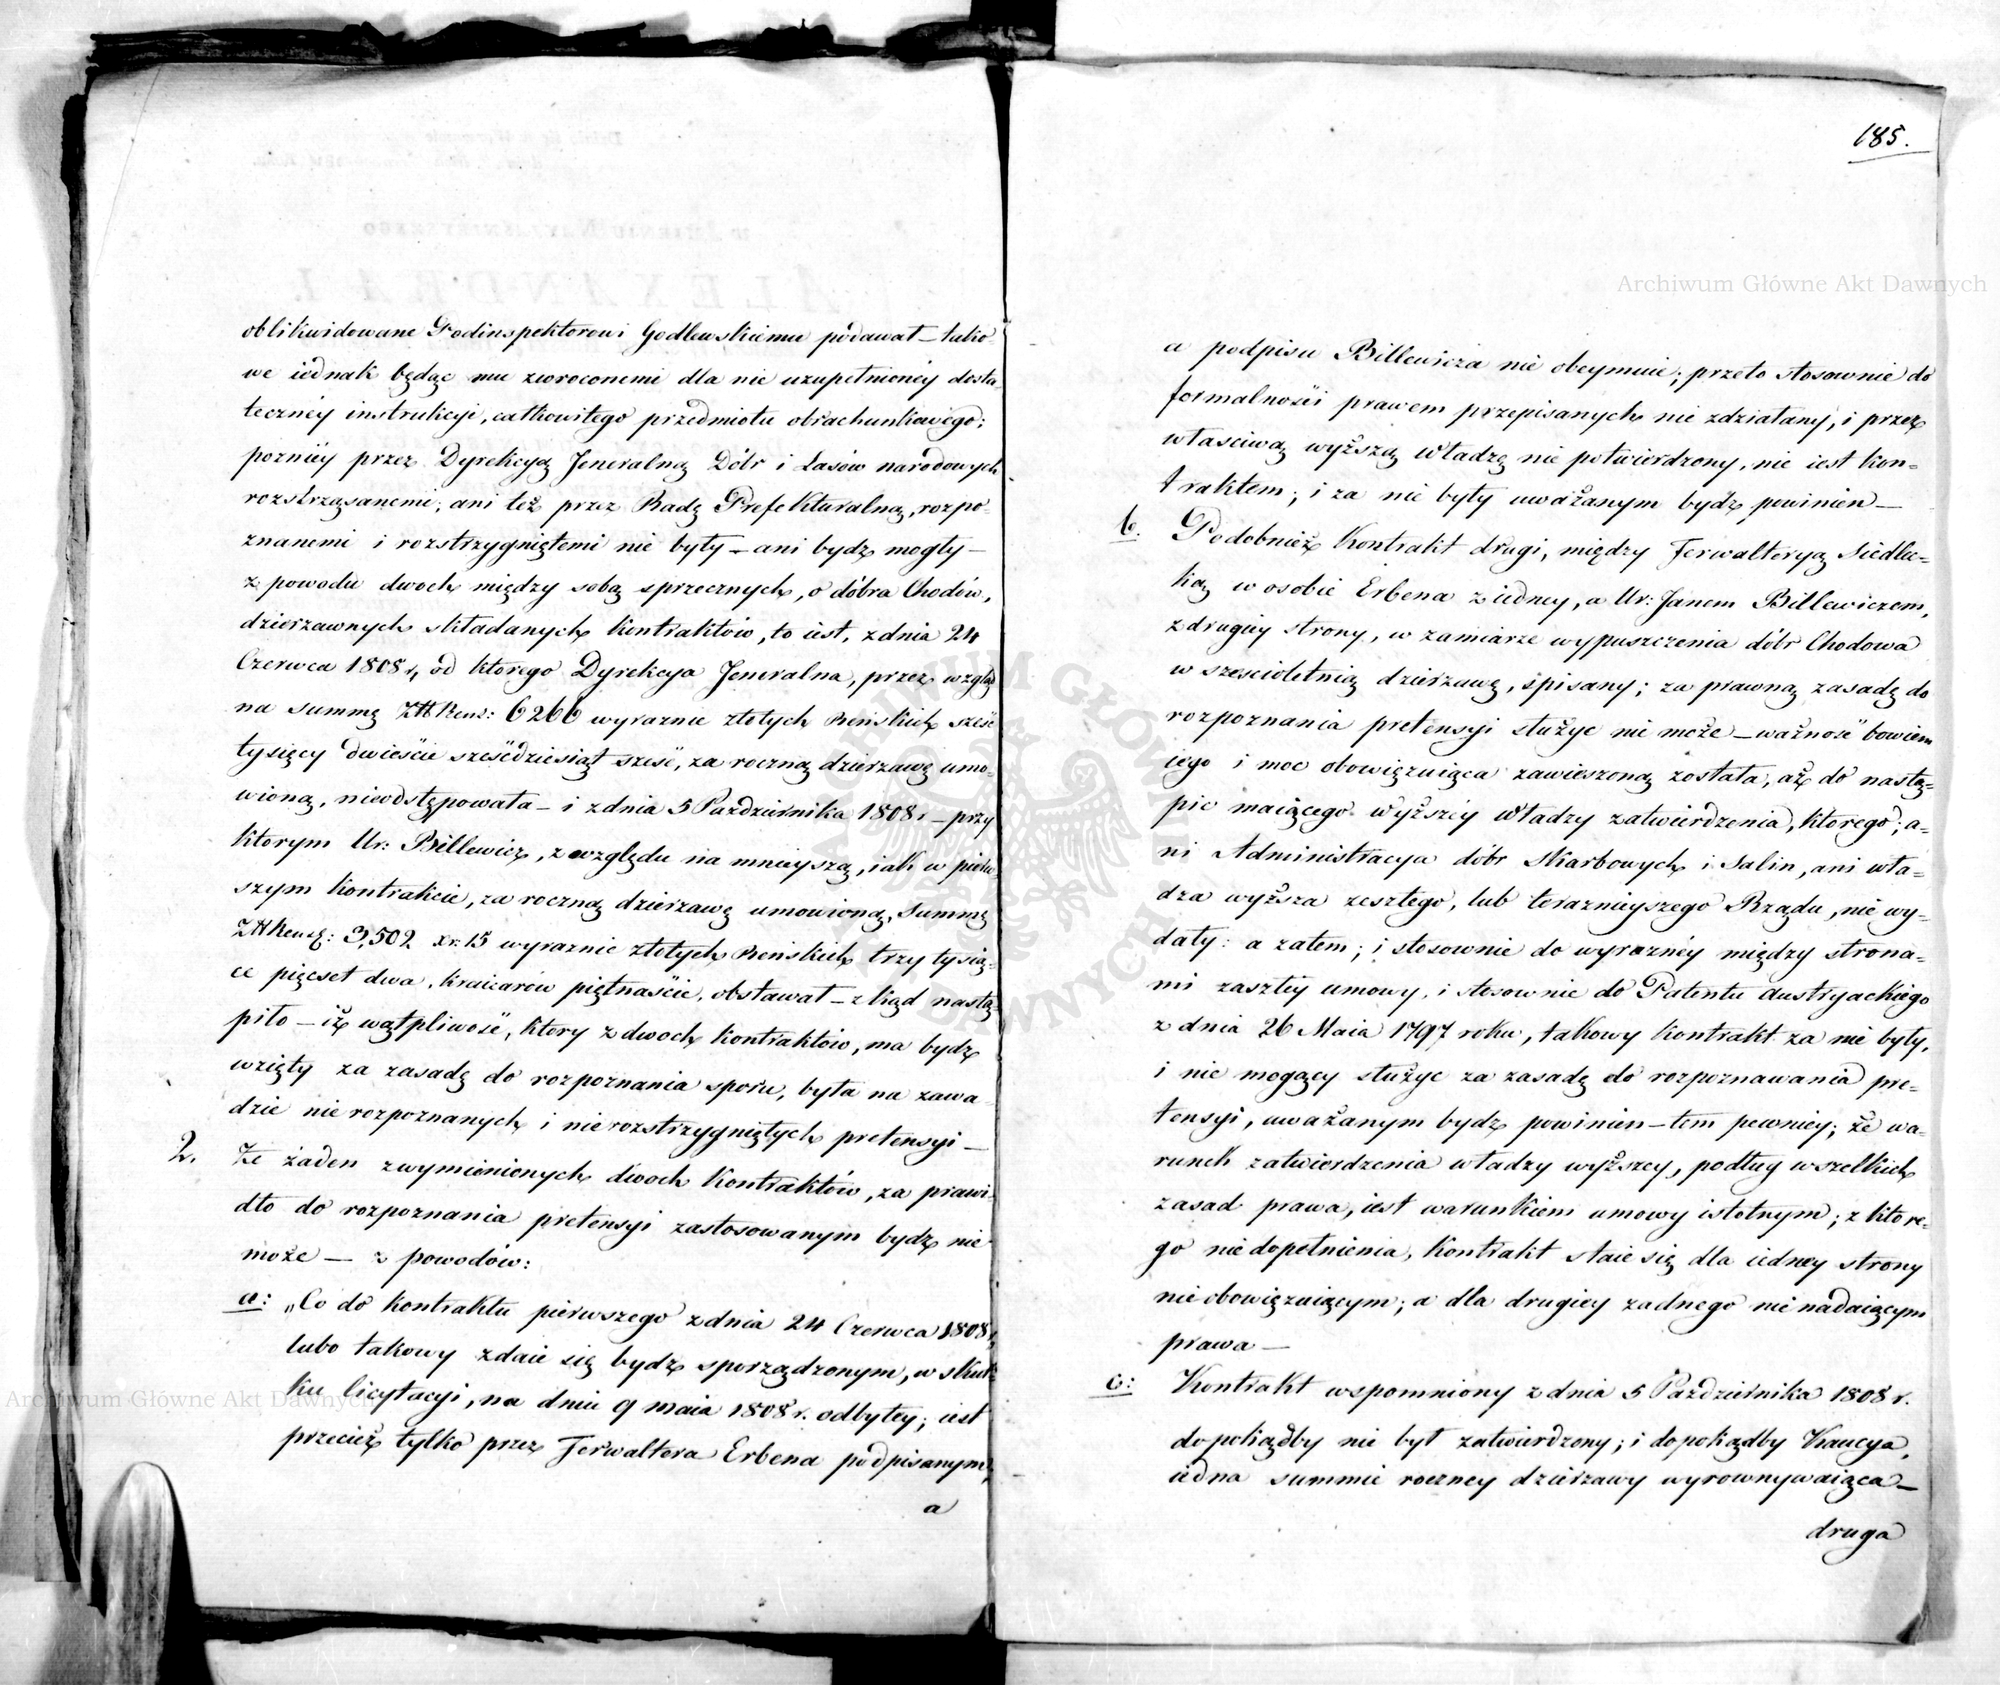 oblikwidowane Podinspektorowi Godlewskiemu podawał – tako-
we iednak będąc mu zwroconemi dla nie uzupełnioney dosta-
teczney instrukcyi, całkowitego przedmiotu obrachunkowego;
pozniey przez Dyrekcyą Jeneralną Dóbr i Lasów narodowych
rozstrząsanemi; ani też przez Radę Prefekturalną, rozpo-
znanemi i rozstrzygniętemi nie były – ani bydz mogły –
z powodu dwoch między sobą sprzecznych, o dóbra Chodów,
dzierzawnych składanych kontraktów, to iest, z dnia 24
Czerwca 1808 r, od ktorego Dyrekcya Jeneralna, przez wzgląd
na summę Zł Rens: 6266 wyraznie złotych Reńskich sześć
tysięcy dwieście sześćdziesiąt sześć, za roczną dzierzawę umo-
wioną, nieodstępowała – i z dnia 5 Pazdziernika 1808 r – przy
ktorym Ur: Billewicz, z względu na mnieyszą, iak w pierw-
szym kontrakcie, za roczną dzierzawę umowioną, summę
Zł Rensk: 3,502 xr: 15 wyraznie złotych Reńskich trzy tysią-
ce pięcset dwa, kraicarów piętnaście, obstawał – zkąd nastą-
piło – iż wątpliwość, ktory z dwoch kontraktów, ma bydz
wzięty za zasadę do rozpoznania sporu, była na zawa-
dzie nierozpoznanych i nierozstrzygniętych pretensyi –
2. Że żaden zwymienionych dwoch Kontraktów, za prawi-
dło do rozpoznania pretensyi zastosowanym bydz nie
może – z powodów:
a: „Co do kontraktu pierwszego z dnia 24 Czerwca 1808 r,
lubo takowy zdaie się bydz sporządzonym, w skut-
ku licytacyi, na dniu 9 maia 1808 r. odbytey; iest
przecież tylko przez Ferwaltera Erbena podpisanym,
a
185.
a podpisu Billewicza nie obeymuie; przeto stosownie do
formalności prawem przepisanych nie zdziałany, i przez
właściwą wyższą Władzę nie potwierdzony, nie iest kon-
traktem; i za nie były uważanym bydz powinien –
b. Podobnież Kontrakt drugi, między Ferwalteryą Siedlec-
ką w osobie Erbena z iedney, a Ur: Janem Billewiczem,
z drugiey strony, w zamiarze wypuszczenia dóbr Chodowa
w szescioletnią dzierzawę, spisany; za prawną zasadę do
rozpoznania pretensyi służyc nie może – ważność bowiem
iego i moc obowięzuiąca zawieszoną została, aż do nastą-
pic maiącego wyższey Władzy zatwierdzenia, ktorego; a-
ni Administracya dóbr Skarbowych i Salin, ani wła-
dza wyższa zeszłego, lub terazniejszego Rządu, nie wy-
dały: a zatem; i stosownie do wyrazney między strona-
mi zaszłey umowy, i stosownie do Patentu austryackiego
z dnia 26 Maia 1797 roku, takowy kontrakt za nie były,
i nie mogący służyc za zasadę do rozpoznawania pre-
tensyi, uważanym bydz powinien – tem pewniey; że wa-
runek zatwierdzenia władzy wyższey, podług wszelkich
zasad prawa, iest warunkiem umowy istotnym; z ktore-
go niedopełnienia, Kontrakt staie się dla iedney strony
nieobowięzuiącym; a dla drugiey zadnego nie nadaiącym
prawa –
c: Kontrakt wspomniony z dnia 5 Pazdziernika 1808 r.
dopokądby nie był zatwierdzony; i dopokądby Kaucya,
iedna summie roczney dzierzawy wyrownywaiąca –
druga
Archiwum Główne Akt Dawnych
Archiwum Główne Akt Dawnych
ARCHIWUM GŁÓWNE AKT DAWNYCH